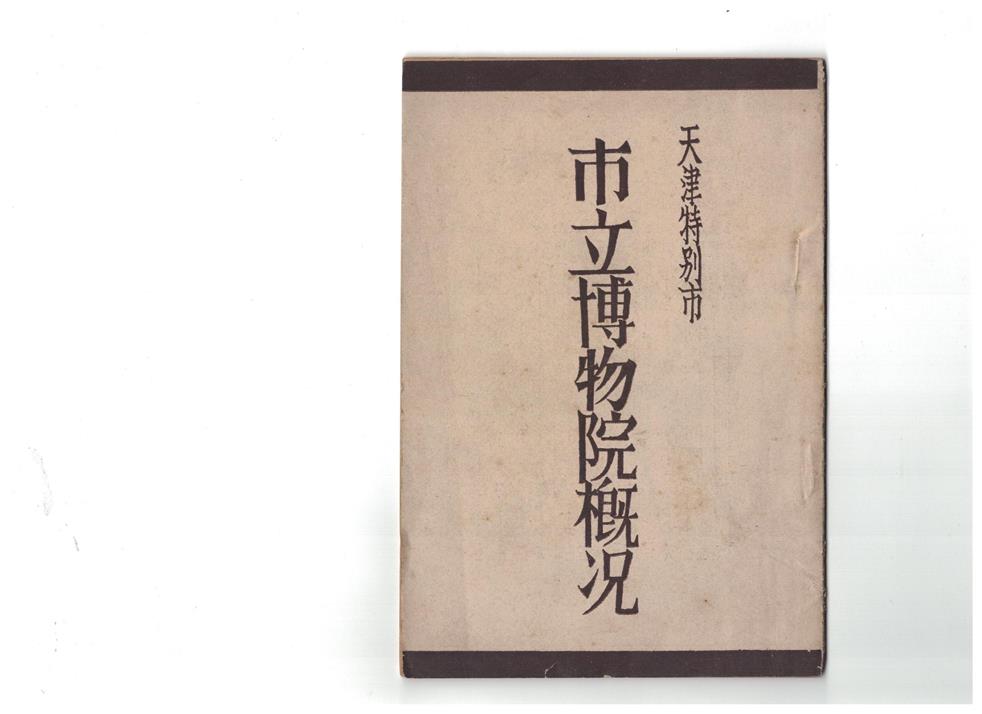 天津特別市
市立博物院概况